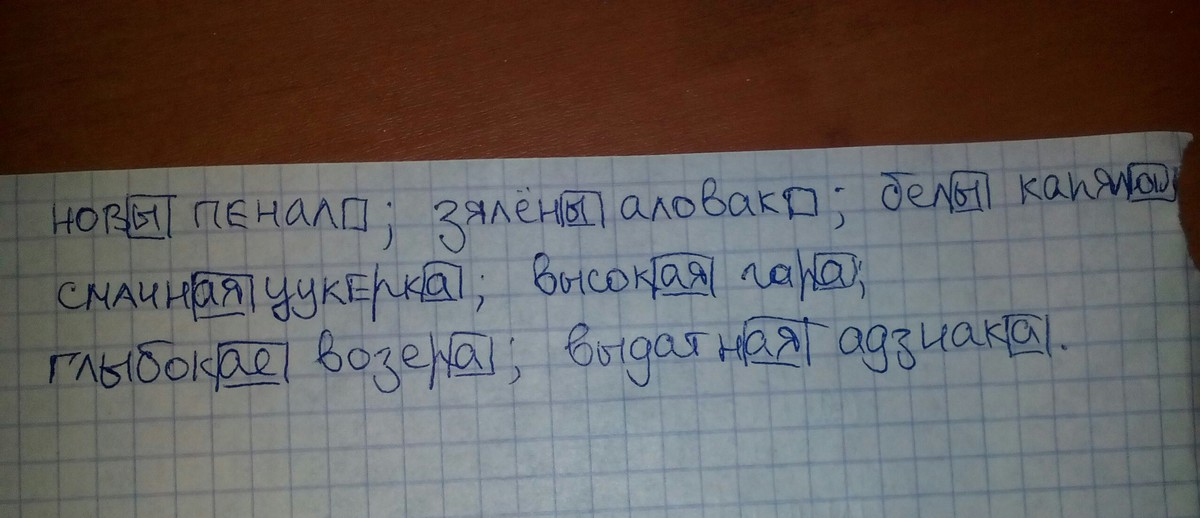 новы пенал; зялёны аловак; белы
смачная цукерка; высокая гара;
глыбокае возера; выдатная адзнака.